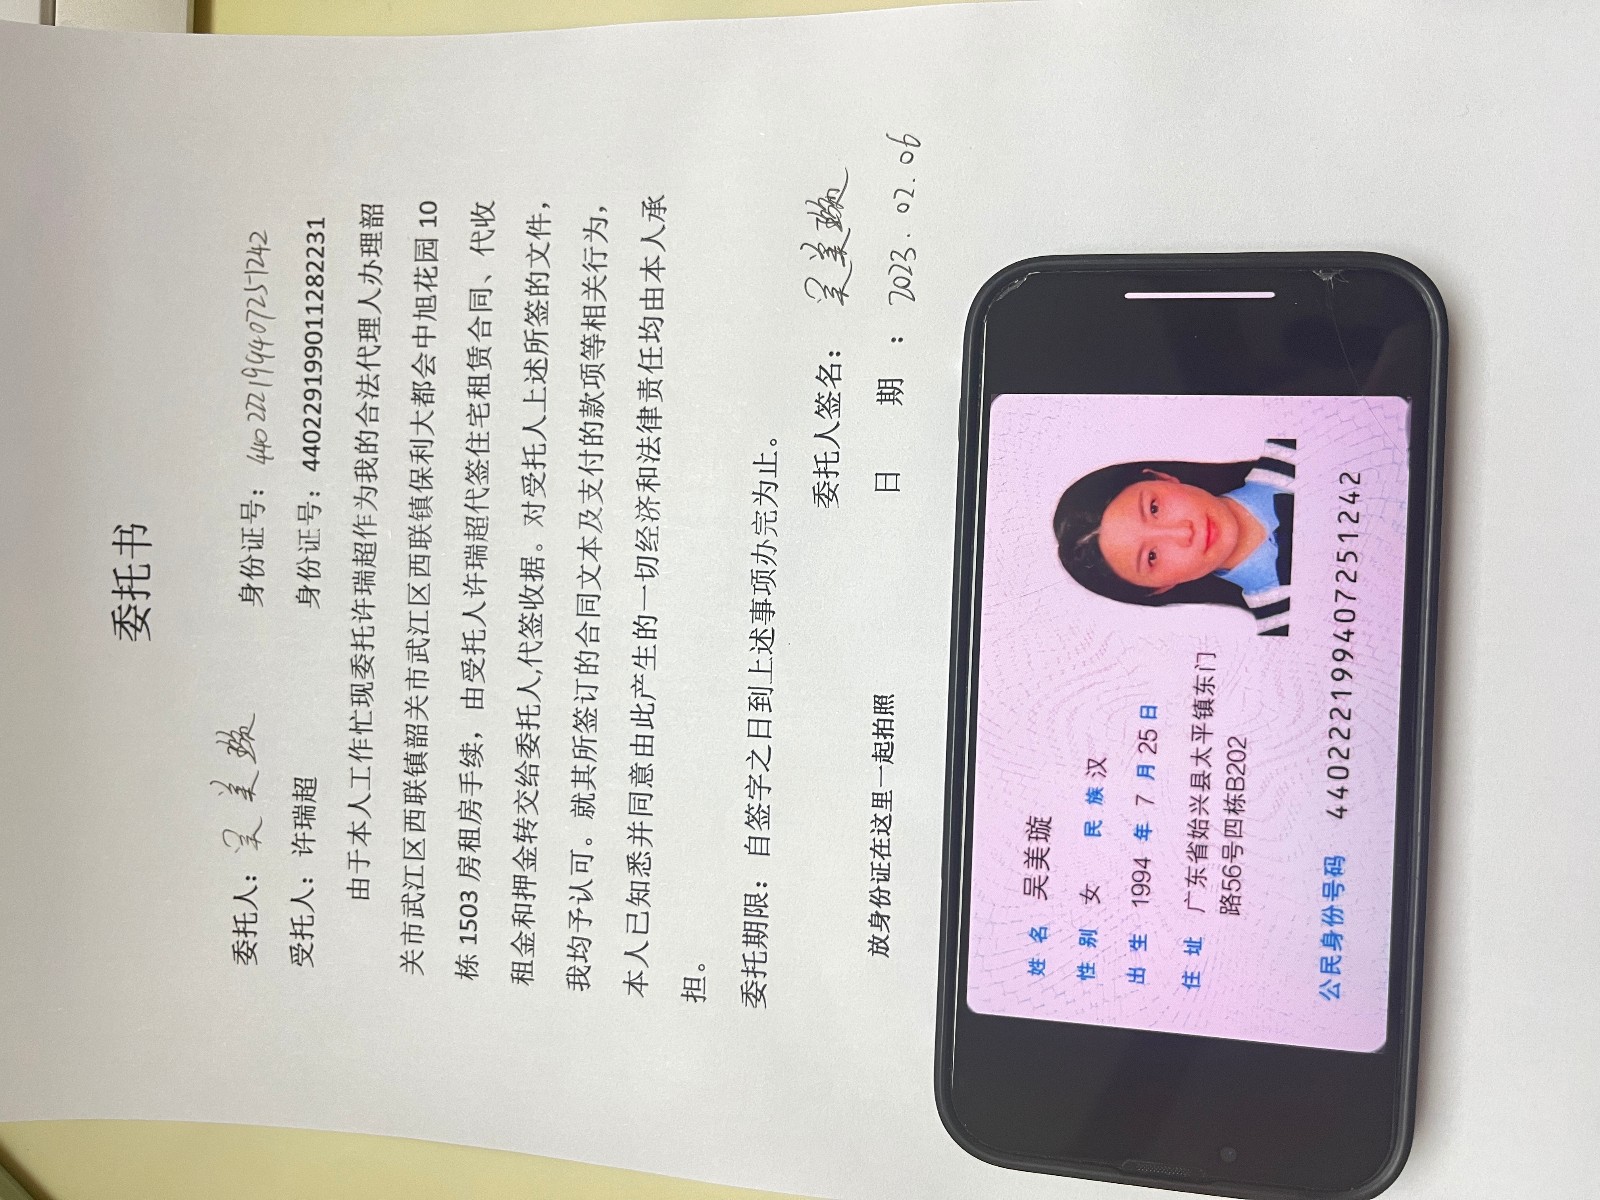 委托书
委托人：吴美璇 身份证号：440222199407251242
受托人：许瑞超 身份证号：440229199011282231
由于本人工作忙现委托许瑞超作为我的合法代理人办理韶
关市武江区西联镇韶关市武江区西联镇保利大都会中旭花园 10
栋 1503 房租房手续，由受托人许瑞超代签住宅租赁合同、代收
租金和押金转交给委托人,代签收据。对受托人上述所签的文件，
我均予认可。就其所签订的合同文本及支付的款项等相关行为，
本人已知悉并同意由此产生的一切经济和法律责任均由本人承
担。
委托期限：自签字之日到上述事项办完为止。
委托人签名：吴美璇
日 期：2023.02.06
放身份证在这里一起拍照
姓名 吴美璇
性别 女 民族 汉
出生 1994 年 7 月 25 日
住址 广东省始兴县太平镇东门
路56号四栋B202
公民身份号码 440222199407251242